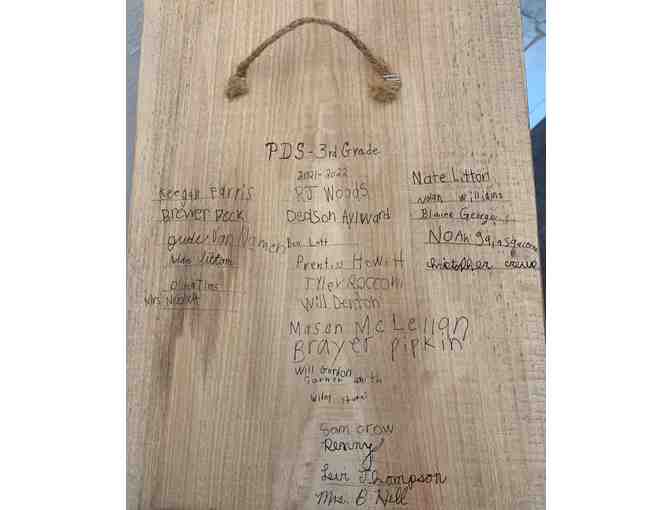 PDS - 3rd Grade
2021-2022
Keegan Farris
Brewer Peck
Jude Van Namen
littom
Mrs
RJ Woods
Dedson Aylward
Ben Lott
Prentis Hewitt
Tyler Rocconi
Will Denton
Mason McLellan
Brayer Pipkin
Will Gordon
Garner Smith
Sam Crow
Renny
Levi Thompson
Mrs. B Nell
Nate Litton
Nolan Williams
Blaine George
Noah
christopher